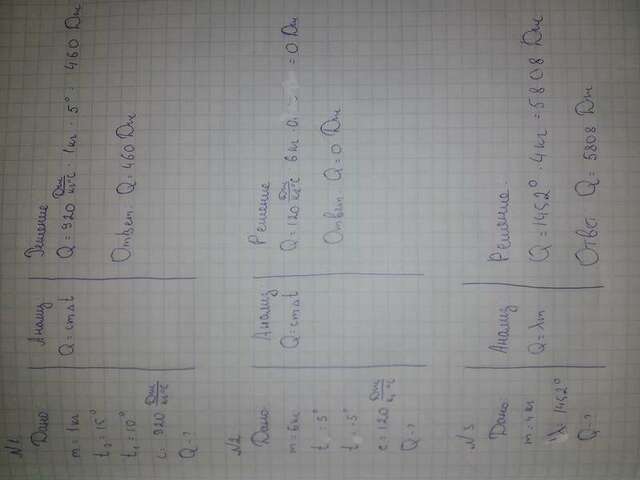 N1
Дано
m = 1 кг
t₂ = 15°
t₁ = 10°
c = 920 Дж/кг·°C
Q - ?
Анализ
Q = cmΔt
Решение
Q = 920 Дж/кг·°C · 1 кг · 5° = 460 Дж
Ответ. Q = 460 Дж
N2
Дано
m = 6 кг
t = 5°
t = 5°
c = 120 Дж/кг·°C
Q - ?
Анализ
Q = cmΔt
Решение
Q = 120 Дж/кг·°C 6 кг = 0 Дж
Ответ. Q = 0 Дж
N3
Дано
m = 4 кг
λ 1452°
Q - ?
Анализ
Q = λm
Решение.
Q = 1452° · 4 кг = 5808 Дж
Ответ Q = 5808 Дж